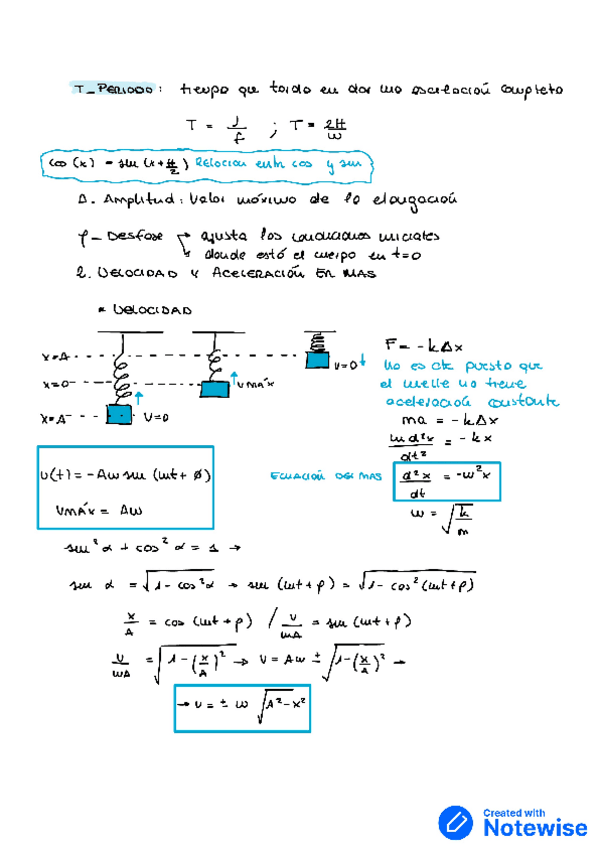 T_PERIODO: tiempo que tarda en dar una oscilación completa
T = 1/f ; T = 2π/w
cos (x) = sin (x + π/2) Relacion entre cos y sin
A. Amplitud: Valor máximo de la elongación
φ_ Desfase → ajusta las condiciones iniciales
↘ donde está el cuerpo en t=0
2. VELOCIDAD Y ACELERACIÓN EN MAS
* VELOCIDAD
x=A
x=0
x=A
V=0
vmáx
V=0
F = -kΔx
No es cte puesto que
el muelle no tiene
aceleración constante
ma = -kΔx
m d²x/dt² = -kx
ECUACIÓN DEL MAS d²x/dt = -w²x
w = √(k/m)
v(t) = -Aw sin (wt + ø)
Vmáx = Aw
sin²α + cos²α = 1 →
sin α = √(1 - cos²α) → sin (wt + φ) = √(1 - cos²(wt + φ))
x/A = cos (wt + φ) / v/wA = sin (wt + φ)
v/wA = √(1 - (x/A)²) → v = Aw ± √(1 - (x/A)²) →
→ v = ± w √(A² - x²)
Created with
Notewise